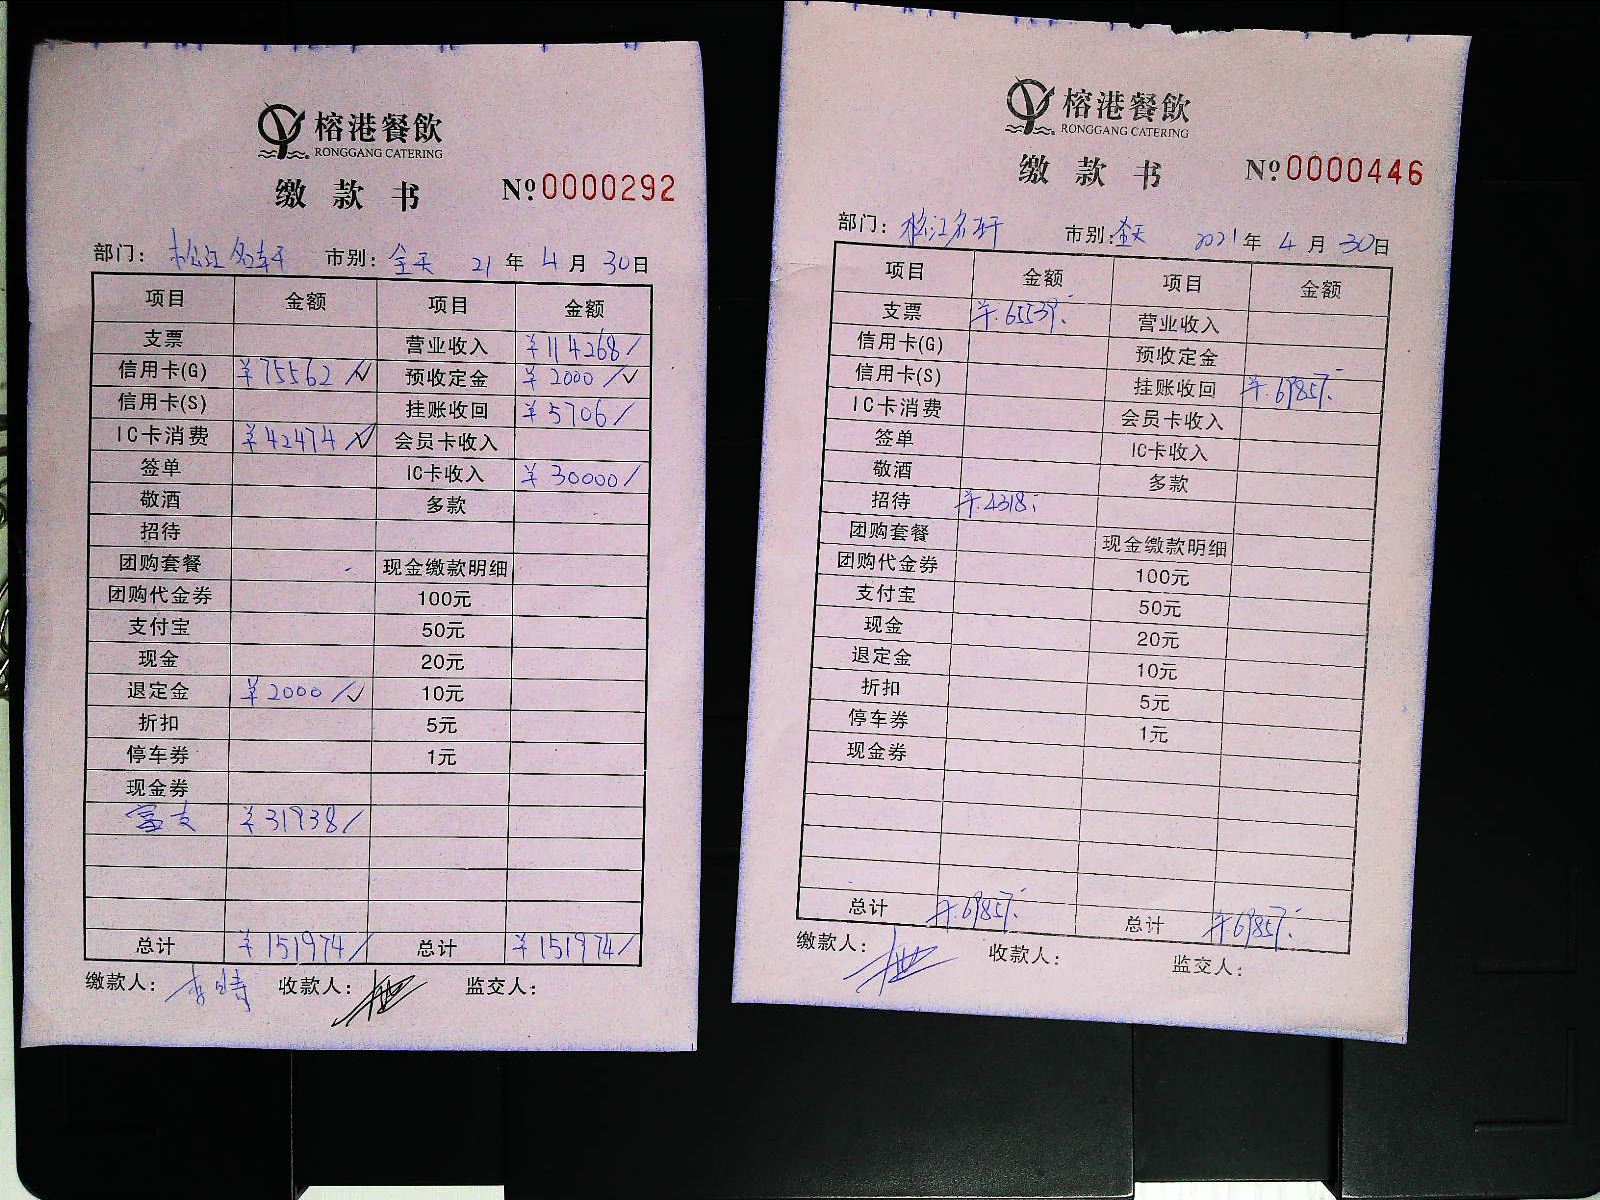 榕港餐飲
RONGGANG CATERING
缴款书 №0000292
部门：松江名轩 市别：全天 21年4月30日
项目 金额 项目 金额
支票 营业收入 ¥114268/
信用卡(G) ¥75562/✓ 预收定金 ¥2000/✓
信用卡(S) 挂账收回 ¥5706/
IC卡消费 ¥42474/✓ 会员卡收入
签单 IC卡收入 ¥30000/
敬酒 多款
招待
团购套餐 现金缴款明细
团购代金券 100元
支付宝 50元
现金 20元
退定金 ¥2000/✓ 10元
折扣 5元
停车券 1元
现金券
富友 ¥31938/
总计 ¥151974/ 总计 ¥151974/
缴款人： 收款人： 监交人：
榕港餐飲
RONGGANG CATERING
缴款书 №0000446
部门：松江名轩 市别：全天 2021年4月30日
项目 金额 项目 金额
支票 ¥.65539. 营业收入
信用卡(G) 预收定金
信用卡(S) 挂账收回 ¥.69857.
IC卡消费 会员卡收入
签单 IC卡收入
敬酒 多款
招待 ¥.4318.
团购套餐 现金缴款明细
团购代金券 100元
支付宝 50元
现金 20元
退定金 10元
折扣 5元
停车券 1元
现金券
总计 ¥.69857. 总计 ¥.69857.
缴款人： 收款人： 监交人：